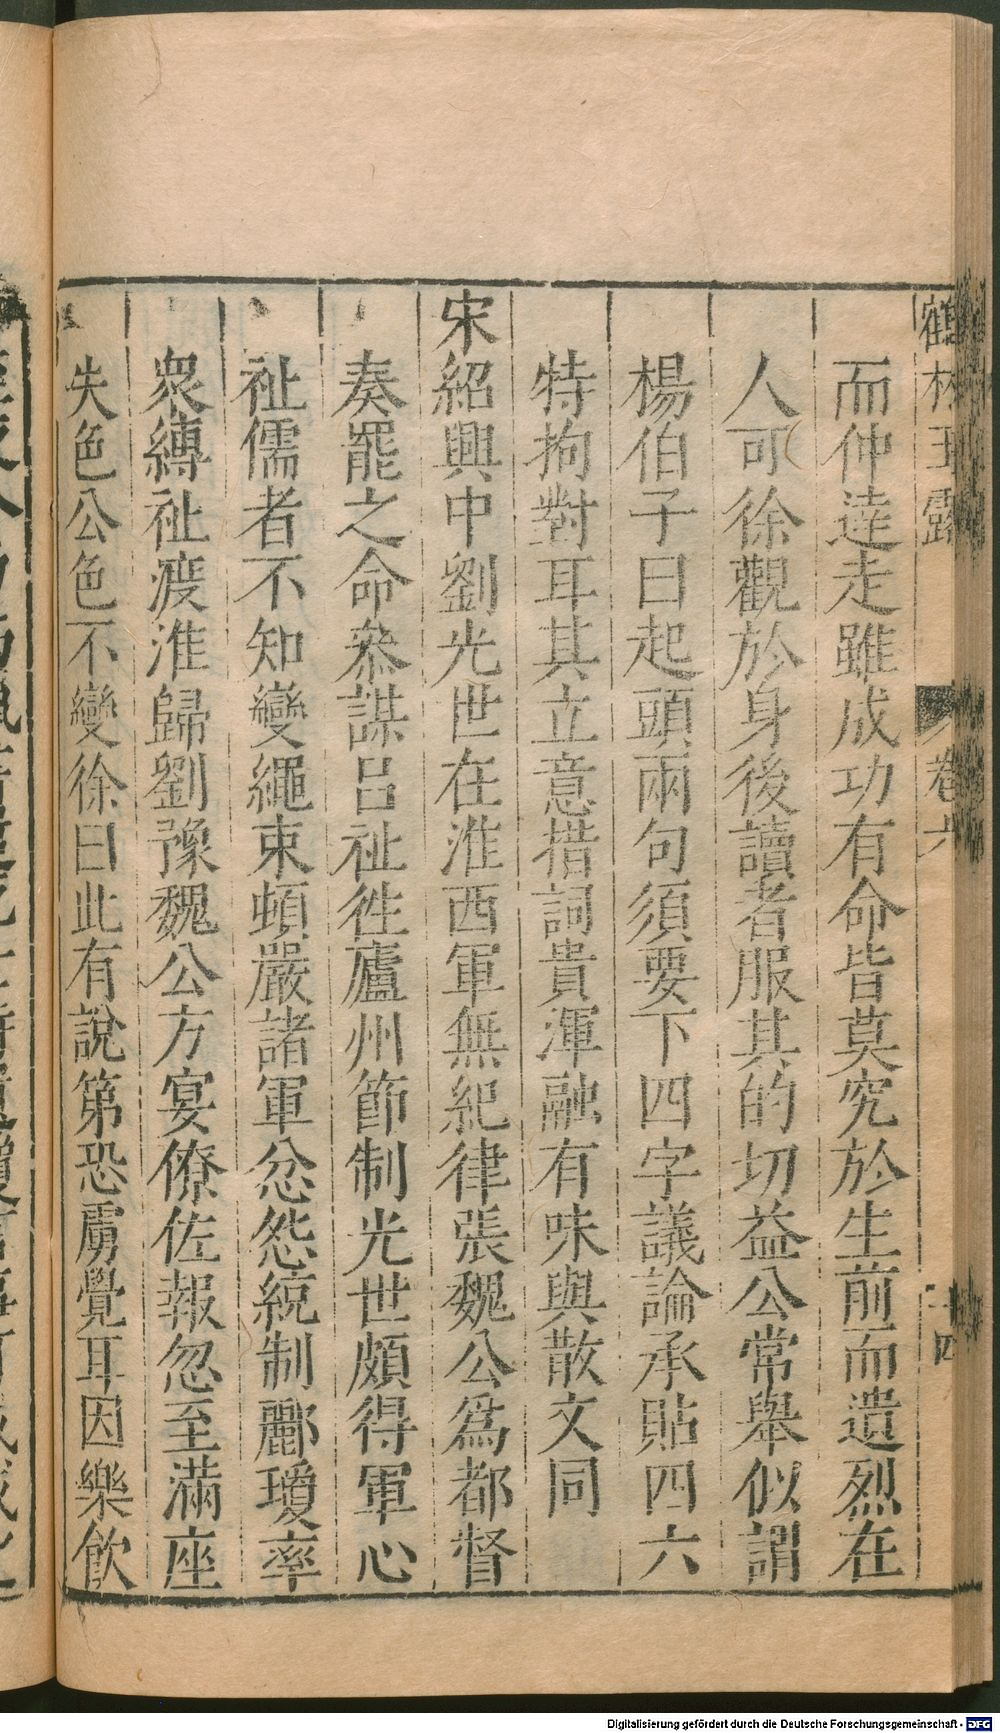 鶴林玉露 卷六 十四
而仲達走雖成功有命皆莫究於生前而遺烈在
人可徐觀於身後讀者服其的切益公常舉似謂
楊伯子曰起頭兩句須要下四字議論承貼四六
特拘對耳其立意措詞貴渾融有味與散文同
宋紹興中劉光世在淮西軍無紀律張魏公爲都督
奏罷之命叅謀呂祉徃廬州節制光世頗得軍心
祉儒者不知變繩束頓嚴諸軍忿怨統制酈瓊率
衆縛祉渡淮歸劉豫魏公方宴僚佐報忽至滿座
失色公色不變徐曰此有說第恐虜覺耳因樂飮
Digitalisierung gefördert durch die Deutsche Forschungsgemeinschaft - DFG